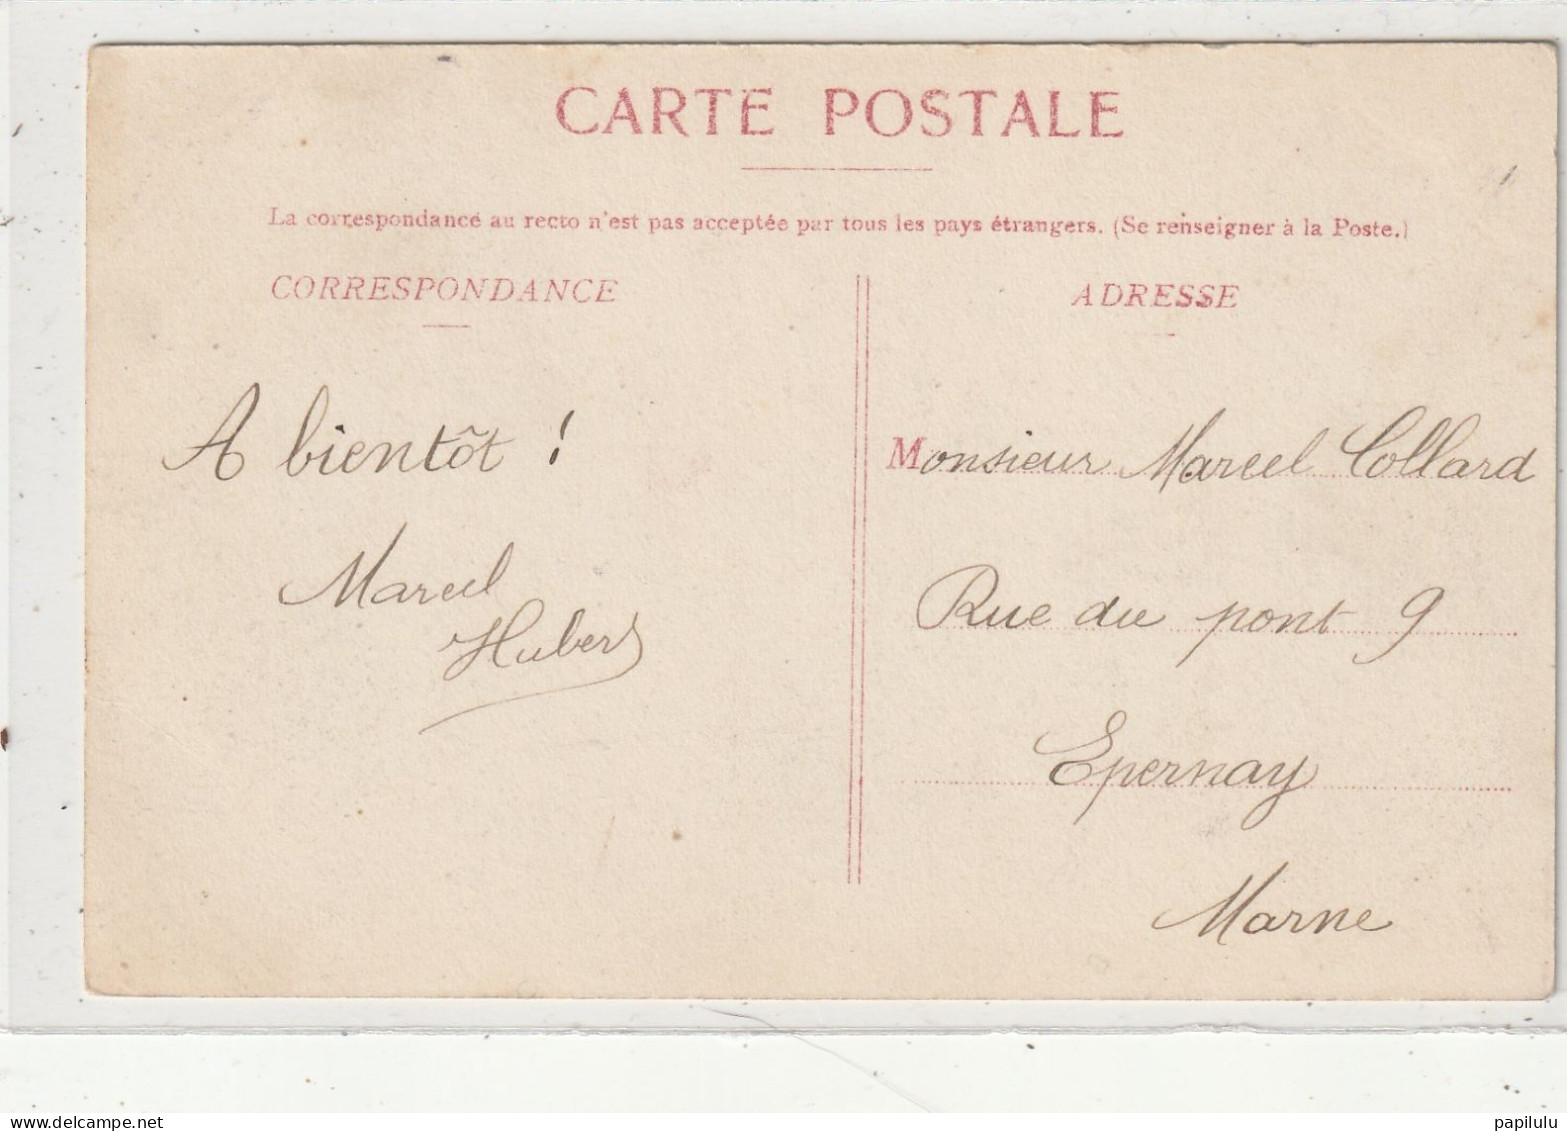 CARTE POSTALE
La correspondance au recto n'est pas acceptée par tous les pays étrangers. (Se renseigner à la Poste.)
CORRESPONDANCE
A bientôt !
Marcel
Hubert
ADRESSE
Monsieur Marcel Collard
Rue du pont 9
Epernay
Marne
www.delcampe.net
papilulu